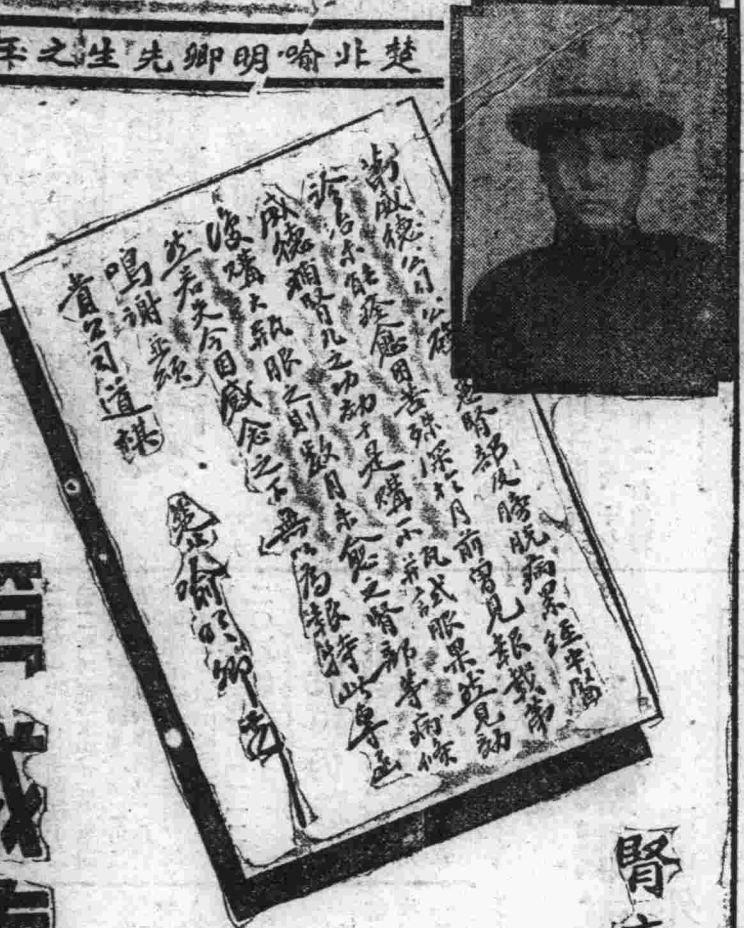 楚北喻明卿先生之玉
第威德公司公鑒 患腎部及膀胱病累經中醫
診治未能痊愈困苦殊深於月前曾見報載第
威德補腎丸之功効于是購一小瓶試服果然見効
後購大瓶服之則數月未愈之腎部等病候
若失今因感念之下無以為報特此專函
鳴謝並頌
貴公司道祺
楚北喻明卿
腎